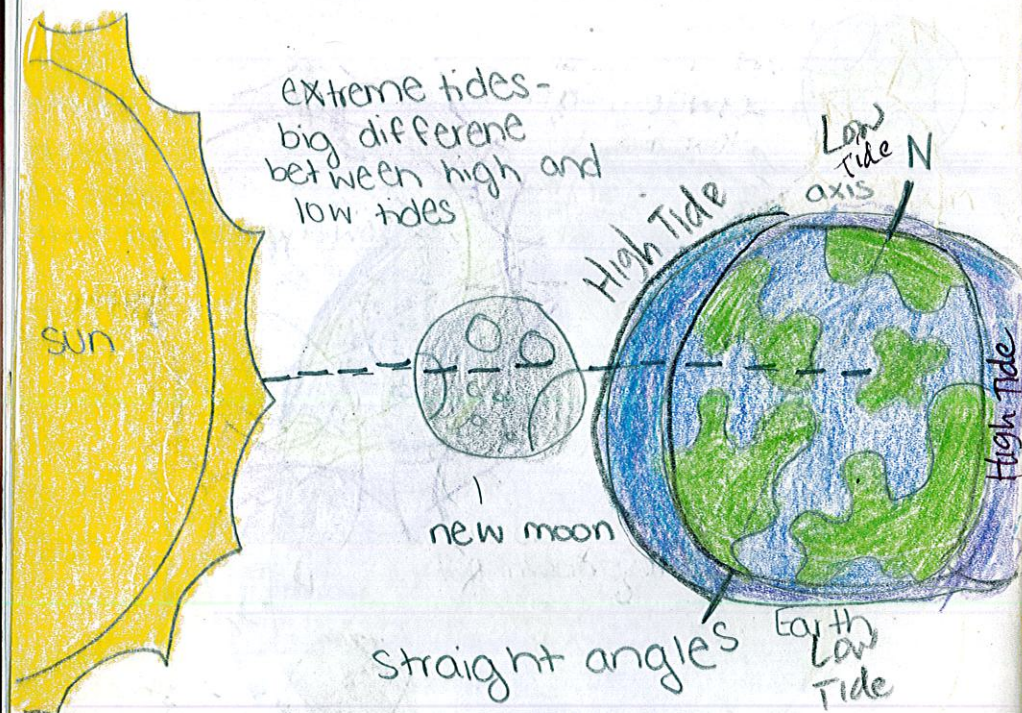 extreme tides-
big differene
between high and
low tides
Low
Tide
N
axis
High Tide
sun
High Tide
new moon
Earth
Low
Tide
straight angles